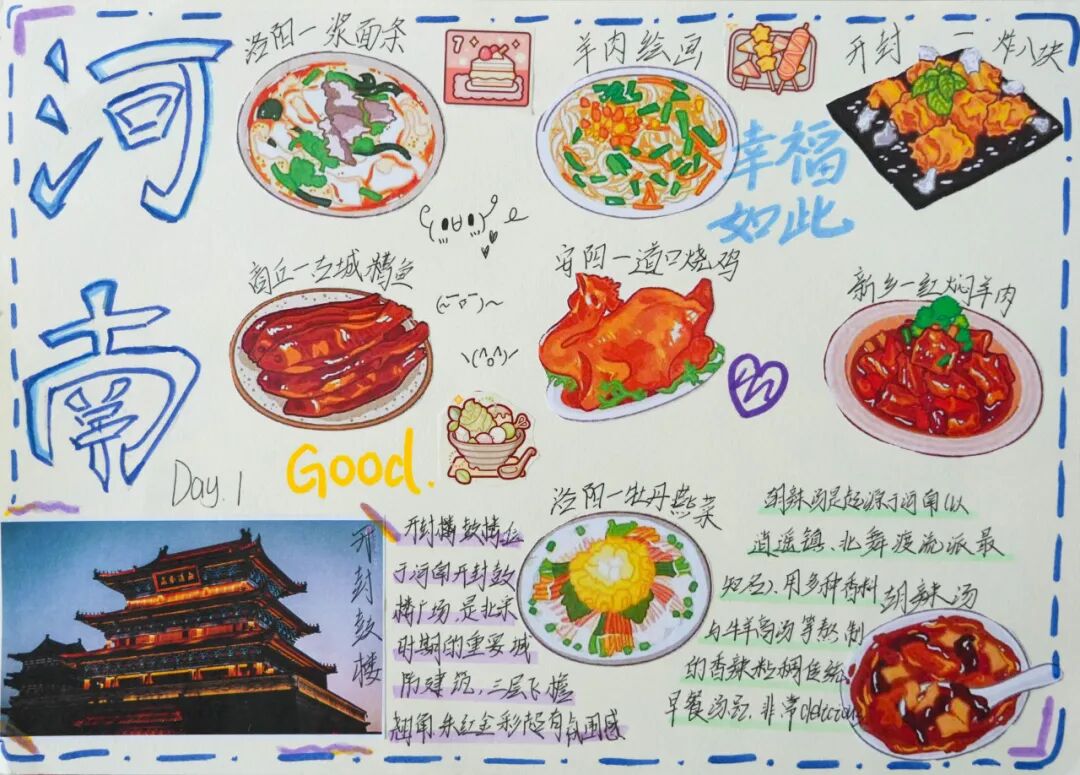 河南
洛阳一浆面条
羊肉绘画
开封一炸八块
幸福
如此
商丘一古城糟鱼
安阳一道口烧鸡
新乡一红焖羊肉
Good.
Day.1
开封鼓楼
开封楼鼓楼位
于河南开封鼓
楼广场,是北宋
时期的重要城
防建筑,三层飞檐
翘角朱红金彩超有氛围感
洛阳一牡丹燕菜
胡辣汤是起源于河南(以
逍遥镇、北舞渡流派最
知名),用多种香料
与牛羊高汤等熬制
的香辣粘稠传统
早餐汤品,非常delicious
胡辣汤